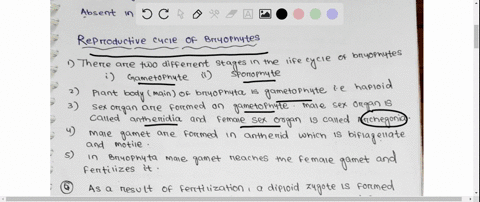 Absent in
Reproductive cycle of Bryophytes
1) There are two different stages in the life cycle of bryophytes
i) Gametophyte (i) Sporophyte
2) Plant body (main) of bryophuta is gametophyte i.e haploid
3) Sex organ are formed on gametophyte. male sex organ is
called anthenidia and female sex organ is called Archegonia
4) male gamet are formed in anthenid which is biflagellate
and motile.
5) In Bryophyta male gamet reaches the female gamet and
fertilizes it.
6 As a result of fertilization, a diploid zygote is formed